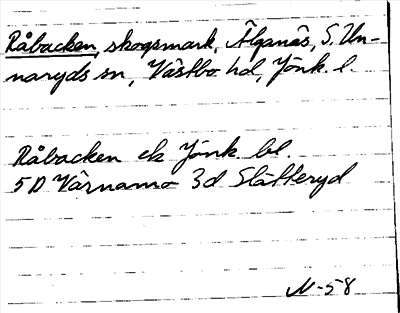 Råbacken, skogsmark, Älganäs, S. Un-
naryds sn, Västbo hd, Jönk. l.
Råbacken ek Jönk. bl.
5 D Värnamo 3d Slätteryd
N-58